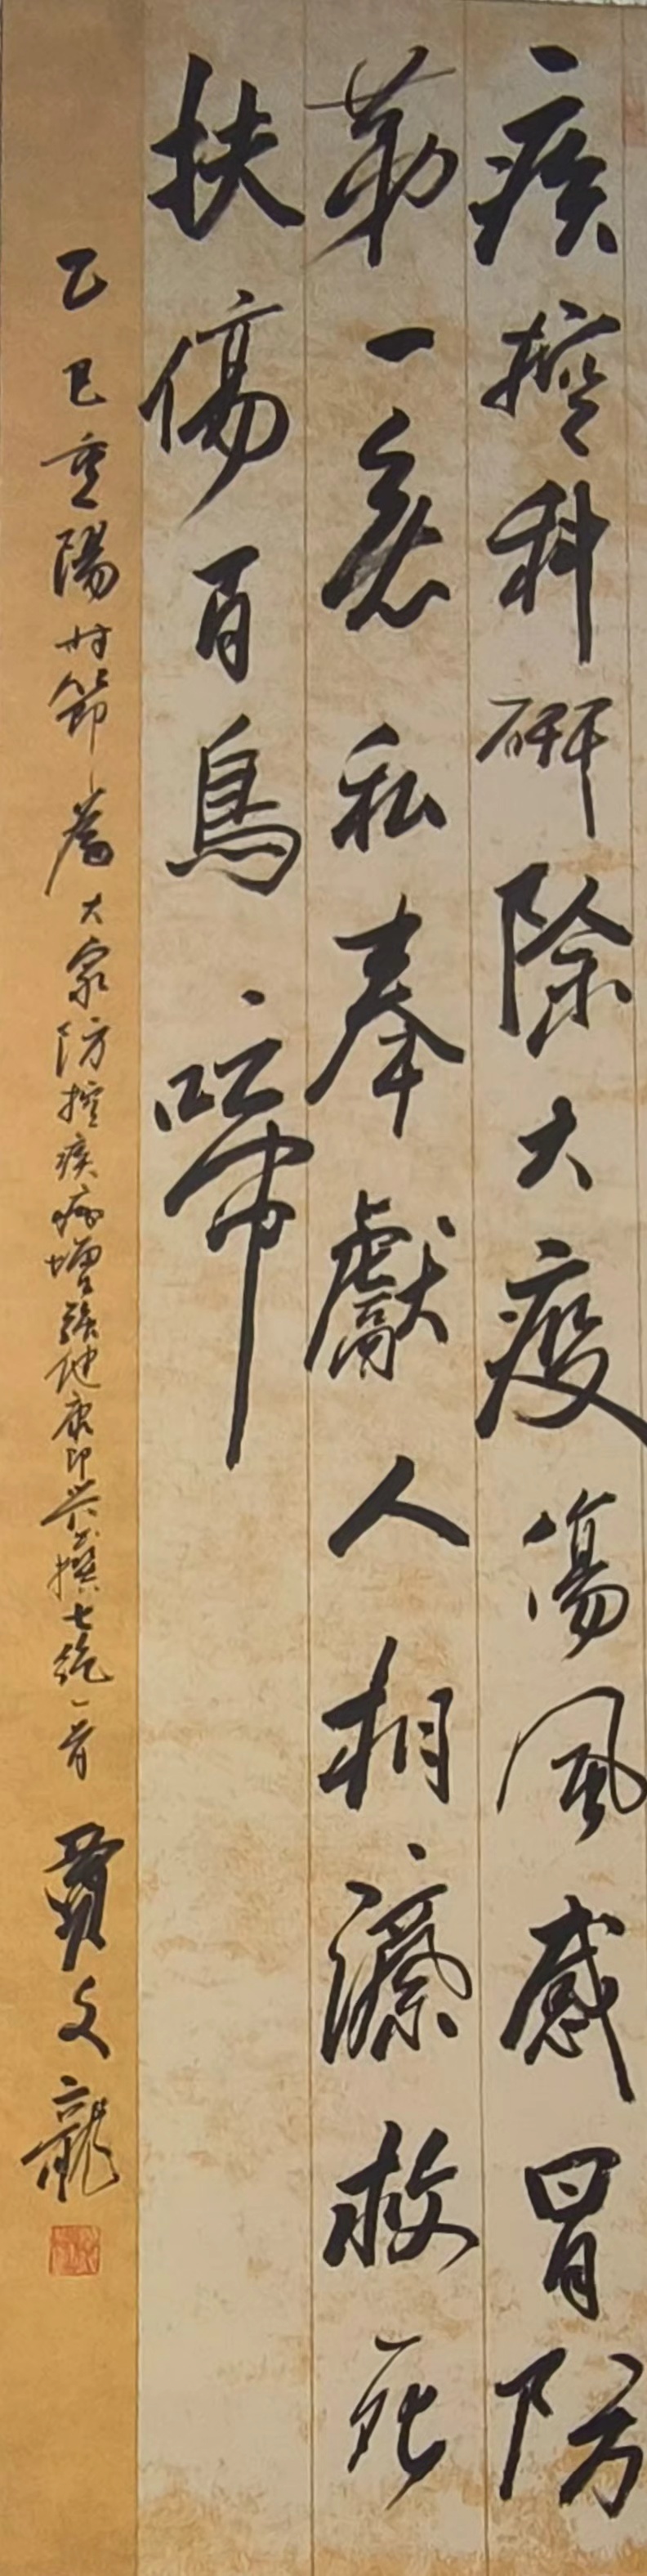 疾控科研除大疫傷風感冒防
第一無私奉獻人相濟救死
扶傷百鳥啼
乙巳重陽時節為大家防控疾病增強健康即興撰七絕一首 文龍